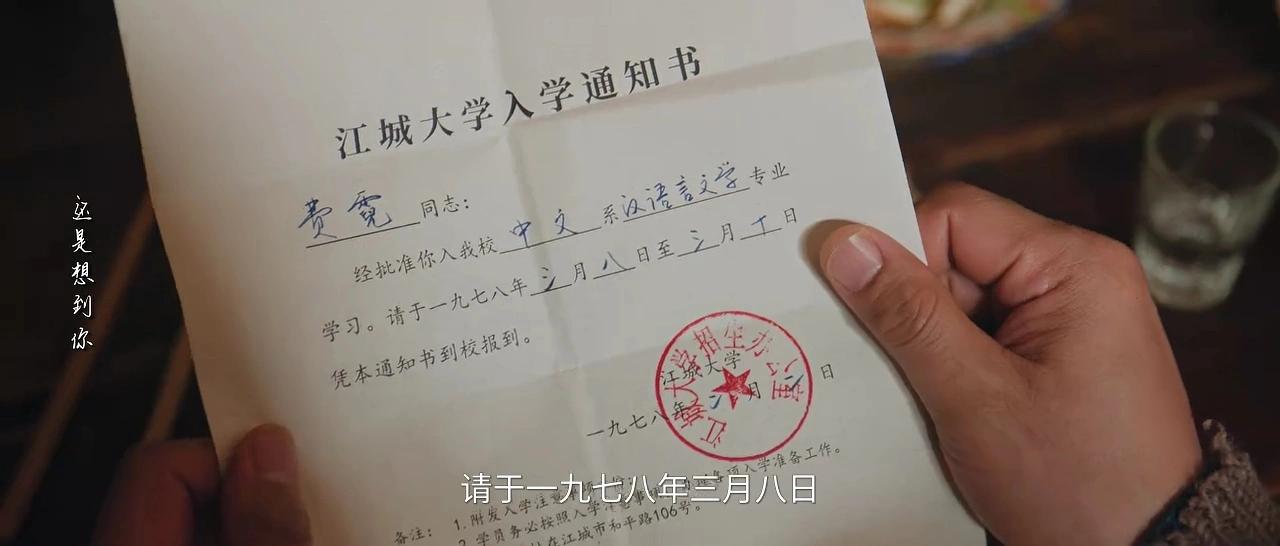 江城大学入学通知书
费霓同志:
经批准你入我校中文系汉语言文学专业
学习。请于一九七八年三月八日至三月十日
凭本通知书到校报到。
江城大学招生办公室
江城大学
一九七八年二月二日
备注: 1. 附发入学注意事项 各项入学准备工作。
2. 学员务必按照入学注意事
在江城市和平路106号。
这是想到你
请于一九七八年三月八日